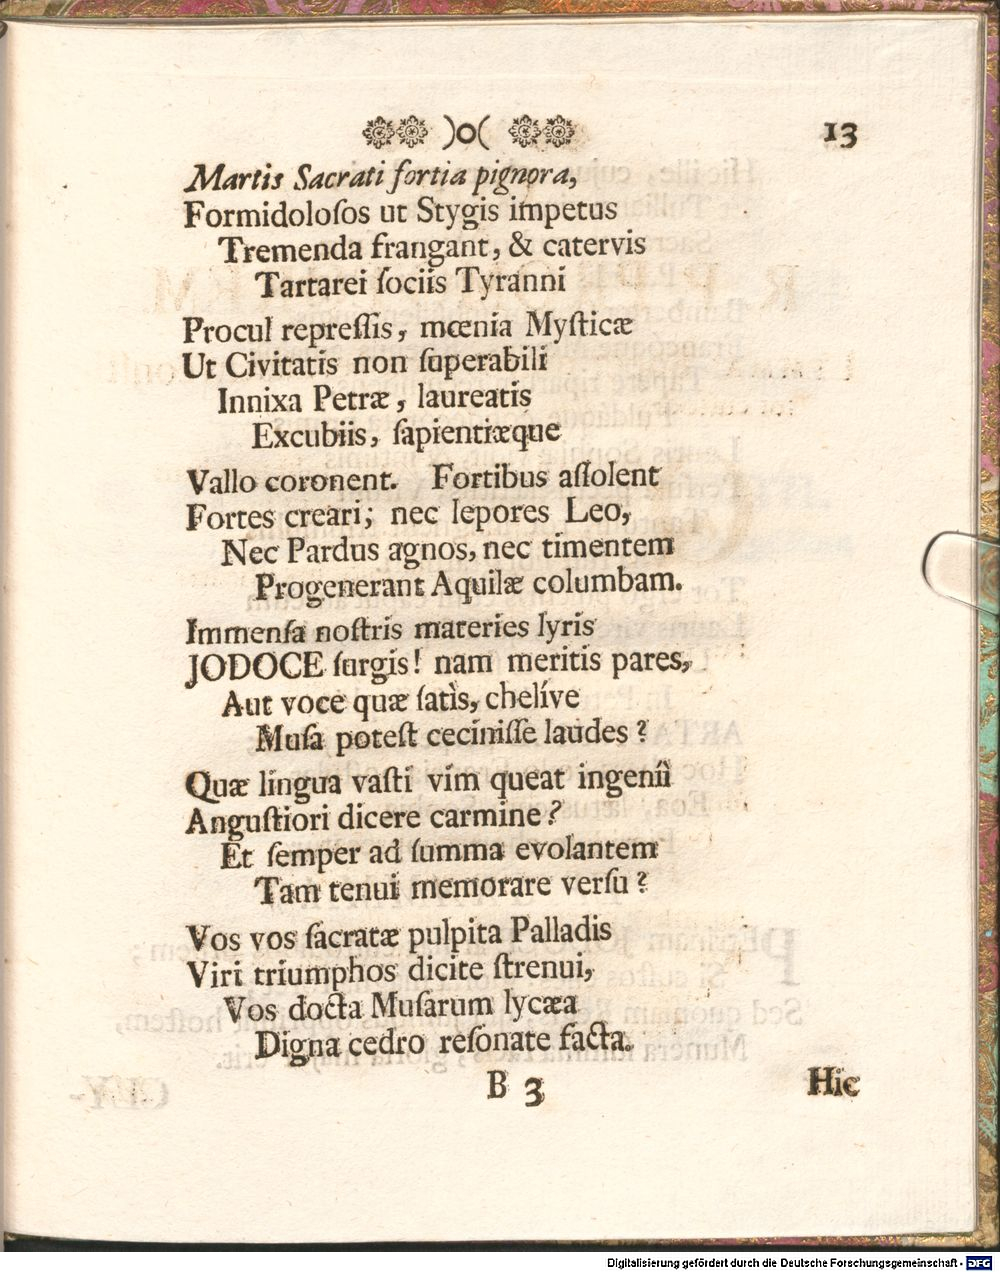 )o( 13
Martis Sacrati fortia pignora,
Formidoloſos ut Stygis impetus
Tremenda frangant, & catervis
Tartarei ſociis Tyranni
Procul repreſſis, mœnia Myſticæ
Ut Civitatis non ſuperabili
Innixa Petræ, laureatis
Excubiis, ſapientiæque
Vallo coronent. Fortibus aſſolent
Fortes creari; nec lepores Leo,
Nec Pardus agnos, nec timentem
Progenerant Aquilæ columbam.
Immenſa noſtris materies lyris
JODOCE ſurgis! nam meritis pares,
Aut voce quæ ſatìs, chelíve
Muſa poteſt ceciniſſe laudes?
Quæ lingua vaſti vim queat ingenîi
Anguſtiori dicere carmine?
Et ſemper ad ſumma evolantem
Tam tenui memorare verſu?
Vos vos ſacratæ pulpita Palladis
Viri triumphos dicite ſtrenui,
Vos docta Muſarum lycæa
Digna cedro reſonate facta.
B 3 Hic
Digitalisierung gefördert durch die Deutsche Forschungsgemeinschaft - DFG